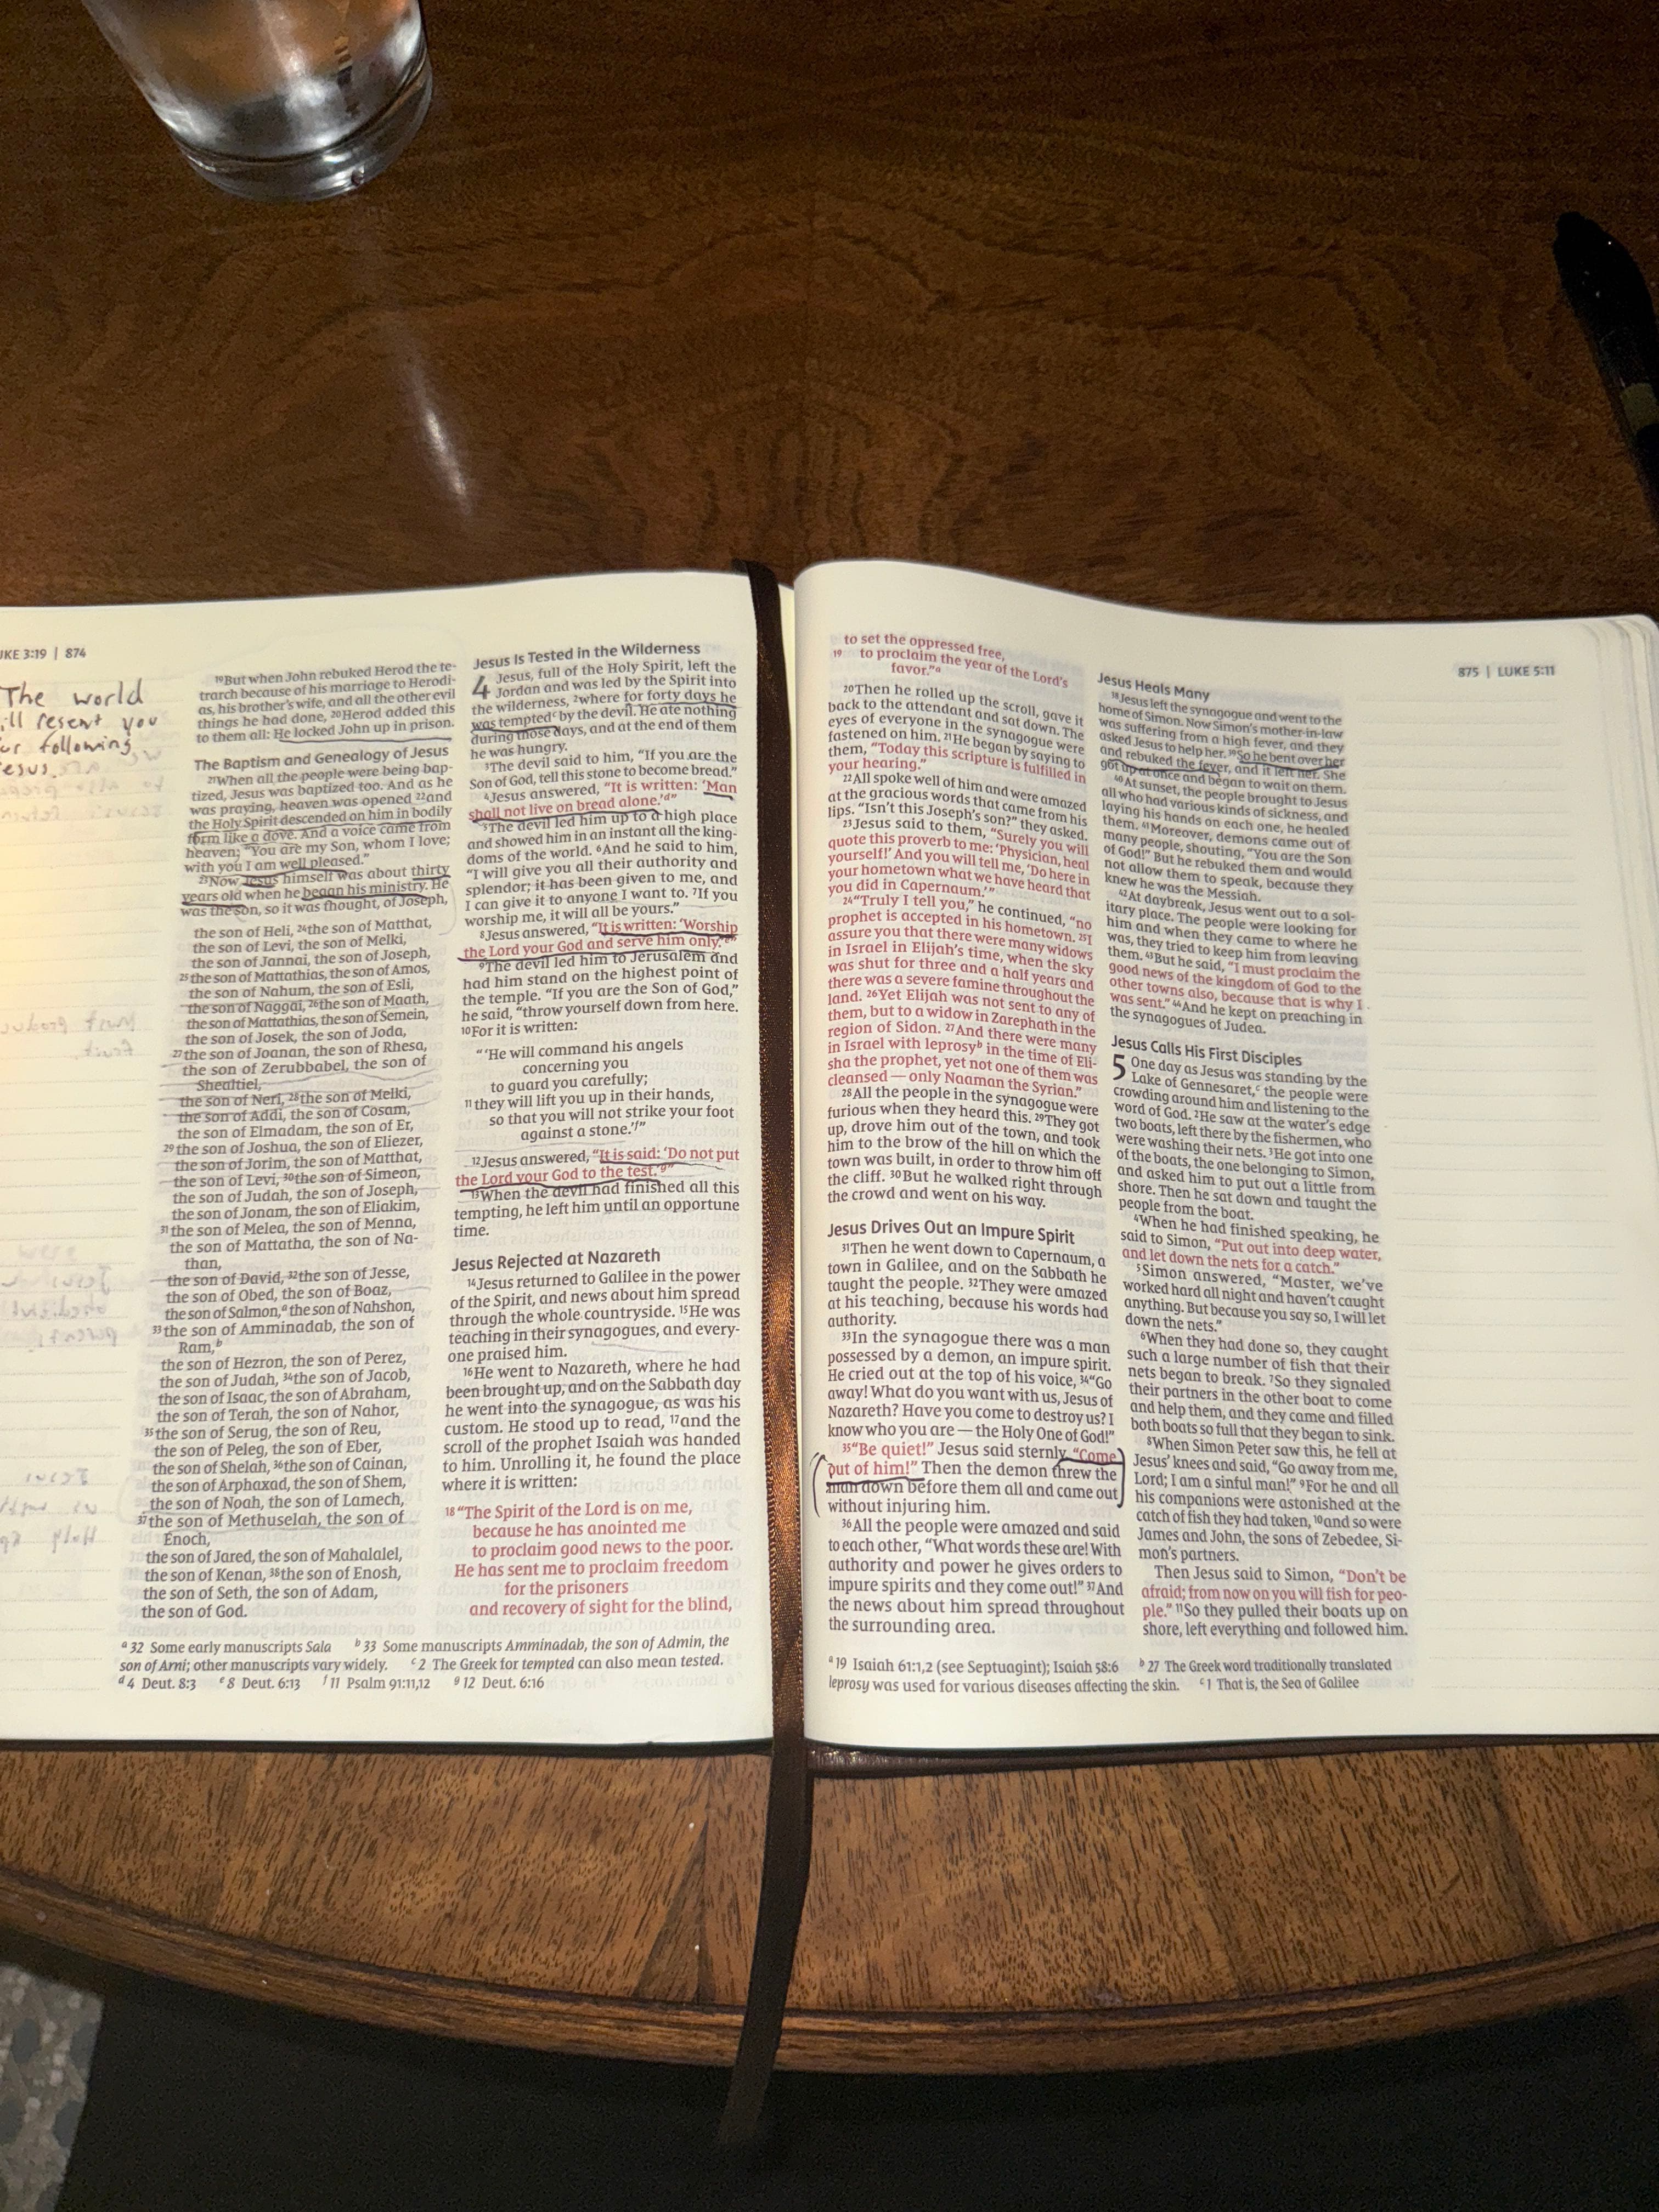 UKE 3:19 | 874
The world
ill resent you
or following
esus.
¹⁹But when John rebuked Herod the te-
trarch because of his marriage to Herodi-
as, his brother's wife, and all the other evil
things he had done, ²⁰Herod added this
to them all: He locked John up in prison.
The Baptism and Genealogy of Jesus
²¹When all the people were being bap-
tized, Jesus was baptized too. And as he
was praying, heaven was opened ²²and
the Holy Spirit descended on him in bodily
form like a dove. And a voice came from
heaven: "You are my Son, whom I love;
with you I am well pleased."
²³Now Jesus himself was about thirty
years old when he began his ministry. He
was the son, so it was thought, of Joseph,
the son of Heli, ²⁴the son of Matthat,
the son of Levi, the son of Melki,
the son of Jannai, the son of Joseph,
²⁵the son of Mattathias, the son of Amos,
the son of Nahum, the son of Esli,
the son of Naggai, ²⁶the son of Maath,
the son of Mattathias, the son of Semein,
the son of Josek, the son of Joda,
²⁷the son of Joanan, the son of Rhesa,
the son of Zerubbabel, the son of
Shealtiel,
the son of Neri, ²⁸the son of Melki,
the son of Addi, the son of Cosam,
the son of Elmadam, the son of Er,
²⁹the son of Joshua, the son of Eliezer,
the son of Jorim, the son of Matthat,
the son of Levi, ³⁰the son of Simeon,
the son of Judah, the son of Joseph,
the son of Jonam, the son of Eliakim,
³¹the son of Melea, the son of Menna,
the son of Mattatha, the son of Na-
than,
the son of David, ³²the son of Jesse,
the son of Obed, the son of Boaz,
the son of Salmon,ᵃ the son of Nahshon,
³³the son of Amminadab, the son of
Ram,ᵇ
the son of Hezron, the son of Perez,
the son of Judah, ³⁴the son of Jacob,
the son of Isaac, the son of Abraham,
the son of Terah, the son of Nahor,
³⁵the son of Serug, the son of Reu,
the son of Peleg, the son of Eber,
the son of Shelah, ³⁶the son of Cainan,
the son of Arphaxad, the son of Shem,
the son of Noah, the son of Lamech,
³⁷the son of Methuselah, the son of
Enoch,
the son of Jared, the son of Mahalalel,
the son of Kenan, ³⁸the son of Enosh,
the son of Seth, the son of Adam,
the son of God.
Jesus Is Tested in the Wilderness
4 Jesus, full of the Holy Spirit, left the
Jordan and was led by the Spirit into
the wilderness, ²where for forty days he
was temptedᶜ by the devil. He ate nothing
during those days, and at the end of them
he was hungry.
³The devil said to him, "If you are the
Son of God, tell this stone to become bread."
⁴Jesus answered, "It is written: 'Man
shall not live on bread alone.'ᵈ"
⁵The devil led him up to a high place
and showed him in an instant all the king-
doms of the world. ⁶And he said to him,
"I will give you all their authority and
splendor; it has been given to me, and
I can give it to anyone I want to. ⁷If you
worship me, it will all be yours."
⁸Jesus answered, "It is written: 'Worship
the Lord your God and serve him only.'ᵉ"
⁹The devil led him to Jerusalem and
had him stand on the highest point of
the temple. "If you are the Son of God,"
he said, "throw yourself down from here.
¹⁰For it is written:
"'He will command his angels
concerning you
to guard you carefully;
¹¹they will lift you up in their hands,
so that you will not strike your foot
against a stone.'ᶠ"
¹²Jesus answered, "It is said: 'Do not put
the Lord your God to the test.'ᵍ"
¹³When the devil had finished all this
tempting, he left him until an opportune
time.
Jesus Rejected at Nazareth
¹⁴Jesus returned to Galilee in the power
of the Spirit, and news about him spread
through the whole countryside. ¹⁵He was
teaching in their synagogues, and every-
one praised him.
¹⁶He went to Nazareth, where he had
been brought up, and on the Sabbath day
he went into the synagogue, as was his
custom. He stood up to read, ¹⁷and the
scroll of the prophet Isaiah was handed
to him. Unrolling it, he found the place
where it is written:
¹⁸"The Spirit of the Lord is on me,
because he has anointed me
to proclaim good news to the poor.
He has sent me to proclaim freedom
for the prisoners
and recovery of sight for the blind,
ᵃ 32 Some early manuscripts Sala ᵇ 33 Some manuscripts Amminadab, the son of Admin, the
son of Arni; other manuscripts vary widely. ᶜ 2 The Greek for tempted can also mean tested.
ᵈ 4 Deut. 8:3 ᵉ 8 Deut. 6:13 ᶠ 11 Psalm 91:11,12 ᵍ 12 Deut. 6:16
875 | LUKE 5:11
to set the oppressed free,
¹⁹ to proclaim the year of the Lord's
favor."ᵃ
²⁰Then he rolled up the scroll, gave it
back to the attendant and sat down. The
eyes of everyone in the synagogue were
fastened on him. ²¹He began by saying to
them, "Today this scripture is fulfilled in
your hearing."
²²All spoke well of him and were amazed
at the gracious words that came from his
lips. "Isn't this Joseph's son?" they asked.
²³Jesus said to them, "Surely you will
quote this proverb to me: 'Physician, heal
yourself!' And you will tell me, 'Do here in
your hometown what we have heard that
you did in Capernaum.'"
²⁴"Truly I tell you," he continued, "no
prophet is accepted in his hometown. ²⁵I
assure you that there were many widows
in Israel in Elijah's time, when the sky
was shut for three and a half years and
there was a severe famine throughout the
land. ²⁶Yet Elijah was not sent to any of
them, but to a widow in Zarephath in the
region of Sidon. ²⁷And there were many
in Israel with leprosyᵇ in the time of Eli-
sha the prophet, yet not one of them was
cleansed — only Naaman the Syrian."
²⁸All the people in the synagogue were
furious when they heard this. ²⁹They got
up, drove him out of the town, and took
him to the brow of the hill on which the
town was built, in order to throw him off
the cliff. ³⁰But he walked right through
the crowd and went on his way.
Jesus Drives Out an Impure Spirit
³¹Then he went down to Capernaum, a
town in Galilee, and on the Sabbath he
taught the people. ³²They were amazed
at his teaching, because his words had
authority.
³³In the synagogue there was a man
possessed by a demon, an impure spirit.
He cried out at the top of his voice, ³⁴"Go
away! What do you want with us, Jesus of
Nazareth? Have you come to destroy us? I
know who you are — the Holy One of God!"
³⁵"Be quiet!" Jesus said sternly. "Come
out of him!" Then the demon threw the
man down before them all and came out
without injuring him.
³⁶All the people were amazed and said
to each other, "What words these are! With
authority and power he gives orders to
impure spirits and they come out!" ³⁷And
the news about him spread throughout
the surrounding area.
Jesus Heals Many
³⁸Jesus left the synagogue and went to the
home of Simon. Now Simon's mother-in-law
was suffering from a high fever, and they
asked Jesus to help her. ³⁹So he bent over her
and rebuked the fever, and it left her. She
got up at once and began to wait on them.
⁴⁰At sunset, the people brought to Jesus
all who had various kinds of sickness, and
laying his hands on each one, he healed
them. ⁴¹Moreover, demons came out of
many people, shouting, "You are the Son
of God!" But he rebuked them and would
not allow them to speak, because they
knew he was the Messiah.
⁴²At daybreak, Jesus went out to a sol-
itary place. The people were looking for
him and when they came to where he
was, they tried to keep him from leaving
them. ⁴³But he said, "I must proclaim the
good news of the kingdom of God to the
other towns also, because that is why I
was sent." ⁴⁴And he kept on preaching in
the synagogues of Judea.
Jesus Calls His First Disciples
5 One day as Jesus was standing by the
Lake of Gennesaret,ᶜ the people were
crowding around him and listening to the
word of God. ²He saw at the water's edge
two boats, left there by the fishermen, who
were washing their nets. ³He got into one
of the boats, the one belonging to Simon,
and asked him to put out a little from
shore. Then he sat down and taught the
people from the boat.
⁴When he had finished speaking, he
said to Simon, "Put out into deep water,
and let down the nets for a catch."
⁵Simon answered, "Master, we've
worked hard all night and haven't caught
anything. But because you say so, I will let
down the nets."
⁶When they had done so, they caught
such a large number of fish that their
nets began to break. ⁷So they signaled
their partners in the other boat to come
and help them, and they came and filled
both boats so full that they began to sink.
⁸When Simon Peter saw this, he fell at
Jesus' knees and said, "Go away from me,
Lord; I am a sinful man!" ⁹For he and all
his companions were astonished at the
catch of fish they had taken, ¹⁰and so were
James and John, the sons of Zebedee, Si-
mon's partners.
Then Jesus said to Simon, "Don't be
afraid; from now on you will fish for peo-
ple." ¹¹So they pulled their boats up on
shore, left everything and followed him.
ᵃ 19 Isaiah 61:1,2 (see Septuagint); Isaiah 58:6 ᵇ 27 The Greek word traditionally translated
leprosy was used for various diseases affecting the skin. ᶜ 1 That is, the Sea of Galilee